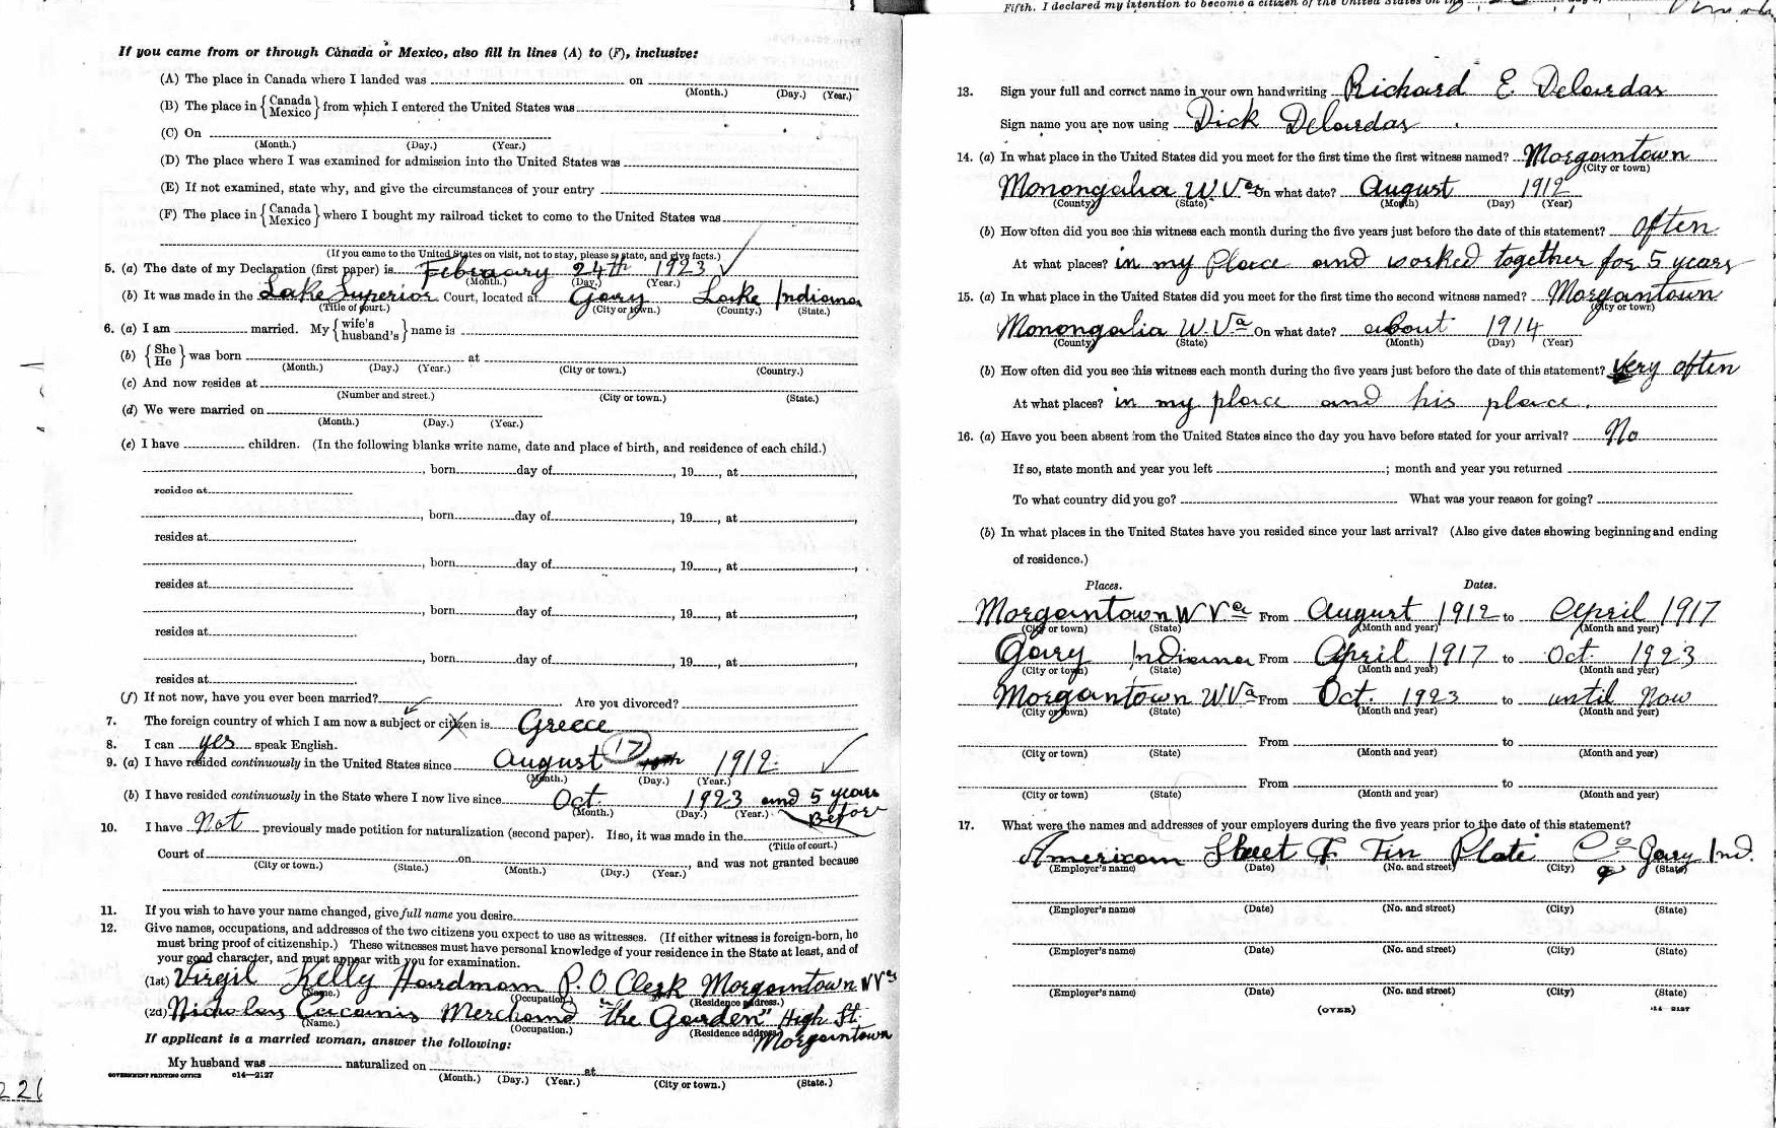 If you came from or through Canada or Mexico, also fill in lines (A) to (F), inclusive:
(A) The place in Canada where I landed was on
(Month.) (Day.) (Year.)
(B) The place in {Canada Mexico} from which I entered the United States was
(C) On
(Month.) (Day.) (Year.)
(D) The place where I was examined for admission into the United States was
(E) If not examined, state why, and give the circumstances of your entry
(F) The place in {Canada Mexico} where I bought my railroad ticket to come to the United States was
(If you came to the United States on visit, not to stay, please so state, and give facts.)
5. (a) The date of my Declaration (first paper) is February 24th 1923
(Month.) (Day.) (Year.)
(b) It was made in the Lake Superior Court, located at Gary Lake Indiana
(Title of court.) (City or town.) (County.) (State.)
6. (a) I am married. My {wife's husband's} name is
(b) {She He} was born at
(Month.) (Day.) (Year.) (City or town.) (Country.)
(c) And now resides at
(Number and street.) (City or town.) (State.)
(d) We were married on
(Month.) (Day.) (Year.)
(e) I have children. (In the following blanks write name, date and place of birth, and residence of each child.)
, born day of , 19 , at ,
resides at
, born day of , 19 , at ,
resides at
, born day of , 19 , at ,
resides at
, born day of , 19 , at ,
resides at
, born day of , 19 , at ,
resides at
(f) If not now, have you ever been married? Are you divorced?
7. The foreign country of which I am now a subject or citizen is Greece
8. I can yes speak English.
9. (a) I have resided continuously in the United States since August 17 1912
(Month.) (Day.) (Year.)
(b) I have resided continuously in the State where I now live since Oct. 1923 and 5 years
(Month.) (Day.) (Year.) Before
10. I have Not previously made petition for naturalization (second paper). If so, it was made in the
(Title of court.)
Court of on , and was not granted because
(City or town.) (State.) (Month.) (Day.) (Year.)
11. If you wish to have your name changed, give full name you desire
12. Give names, occupations, and addresses of the two citizens you expect to use as witnesses. (If either witness is foreign-born, he
must bring proof of citizenship.) These witnesses must have personal knowledge of your residence in the State at least, and of
your good character, and must appear with you for examination.
(1st) Virgil Kelly Hardman P.O. Clerk Morgantown. W Va
(Name.) (Occupation.) (Residence address.)
(2d) Nicholas Cacamis Merchand "the Garden" High St.
(Name.) (Occupation.) (Residence address.) Morgantown
If applicant is a married woman, answer the following:
My husband was naturalized on at
(Month.) (Day.) (Year.) (City or town.) (State.)
GOVERNMENT PRINTING OFFICE 14—2127
226
Fifth. I declared my intention to become a citizen of the United States on the
13. Sign your full and correct name in your own handwriting Richard E Delourdas
Sign name you are now using Dick Delourdas.
14. (a) In what place in the United States did you meet for the first time the first witness named? Morgantown
(City or town)
Monongalia W.Va On what date? August 1912
(County) (State) (Month) (Day) (Year)
(b) How often did you see this witness each month during the five years just before the date of this statement? often
At what places? in my place and worked together for 5 years
15. (a) In what place in the United States did you meet for the first time the second witness named? Morgantown
(City or town)
Monongalia W.Va On what date? about 1914
(County) (State) (Month) (Day) (Year)
(b) How often did you see this witness each month during the five years just before the date of this statement? Very often
At what places? in my place and his place.
16. (a) Have you been absent from the United States since the day you have before stated for your arrival? No
If so, state month and year you left ; month and year you returned
To what country did you go? What was your reason for going?
(b) In what places in the United States have you resided since your last arrival? (Also give dates showing beginning and ending
of residence.)
Places. Dates.
Morgantown W Va From August 1912 to April 1917
(City or town) (State) (Month and year) (Month and year)
Gary Indiana From April 1917 to Oct. 1923
(City or town) (State) (Month and year) (Month and year)
Morgantown W Va From Oct. 1923 to until now
(City or town) (State) (Month and year) (Month and year)
From to
(City or town) (State) (Month and year) (Month and year)
From to
(City or town) (State) (Month and year) (Month and year)
17. What were the names and addresses of your employers during the five years prior to the date of this statement?
American Sheet & Tin Plate Co Gary Ind.
(Employer's name) (Date) (No. and street) (City) (State)
(Employer's name) (Date) (No. and street) (City) (State)
(Employer's name) (Date) (No. and street) (City) (State)
(Employer's name) (Date) (No. and street) (City) (State)
(OVER) 14—2127